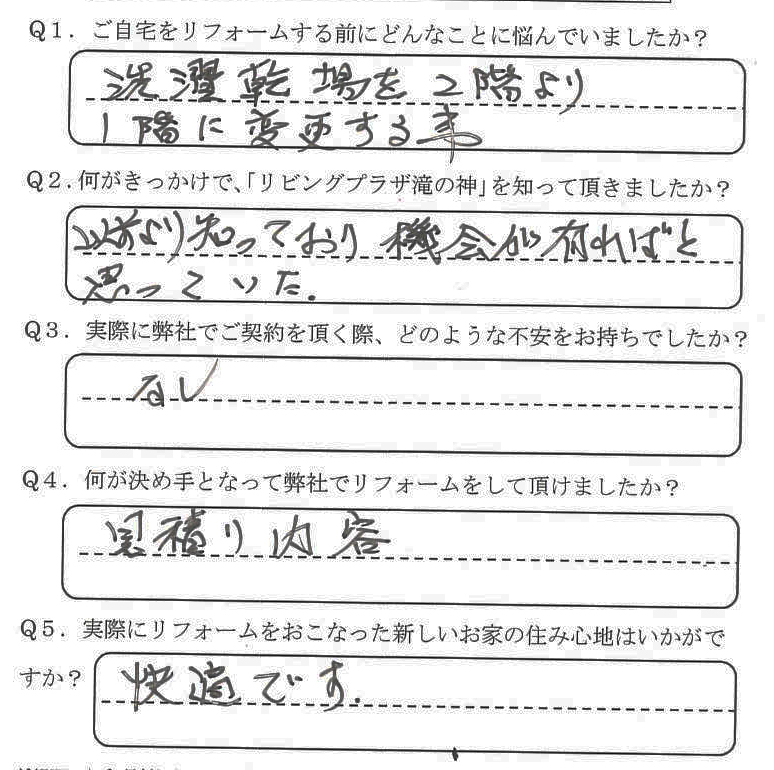 Q1. ご自宅をリフォームする前にどんなことに悩んでいましたか?
洗濯乾場を2階より
1階に変更する事
Q2.何がきっかけで、「リビングプラザ滝の神」を知って頂きましたか?
以前より知っており機会が有ればと
思っていた.
Q3. 実際に弊社でご契約を頂く際、どのような不安をお持ちでしたか?
なし
Q4. 何が決め手となって弊社でリフォームをして頂けましたか?
見積り内容
Q5. 実際にリフォームをおこなった新しいお家の住み心地はいかがで
すか?
快適です.